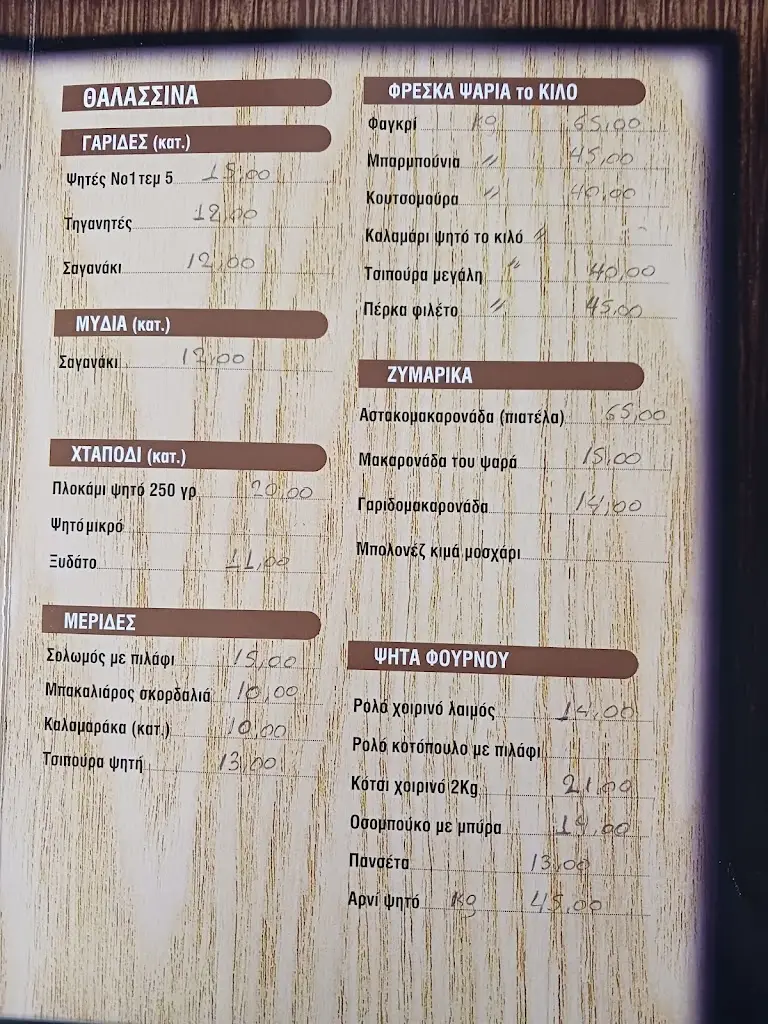 ΘΑΛΑΣΣΙΝΑ
ΓΑΡΙΔΕΣ (κατ.)
Ψητές Νο1τεμ 5 15,00
Τηγανητές 12,00
Σαγανάκι 12,00
ΜΥΔΙΑ (κατ.)
Σαγανάκι 12,00
ΧΤΑΠΟΔΙ (κατ.)
Πλοκάμι ψητό 250 γρ 20,00
Ψητό μικρό
Ξυδάτο 11,00
ΜΕΡΙΔΕΣ
Σολωμός με πιλάφι 15,00
Μπακαλιάρος σκορδαλιά 10,00
Καλαμαράκα (κατ.) 10,00
Τσιπούρα ψητή 13,00
ΦΡΕΣΚΑ ΨΑΡΙΑ το ΚΙΛΟ
Φαγκρί kg 65,00
Μπαρμπούνια 〃 45,00
Κουτσομούρα 〃 40,00
Καλαμάρι ψητό το κιλό 〃
Τσιπούρα μεγάλη 〃 40,00
Πέρκα φιλέτο 〃 45,00
ΖΥΜΑΡΙΚΑ
Αστακομακαρονάδα (πιατέλα) 65,00
Μακαρονάδα του ψαρά 15,00
Γαριδομακαρονάδα 14,00
Μπολονέζ κιμά μοσχάρι
ΨΗΤΑ ΦΟΥΡΝΟΥ
Ρολό χοιρινό λαιμός 14,00
Ρολό κοτόπουλο με πιλάφι
Κότσι χοιρινό 2Kg 21,00
Οσομπούκο με μπύρα
Πανσέτα 13,00
Αρνί ψητό kg 45,00